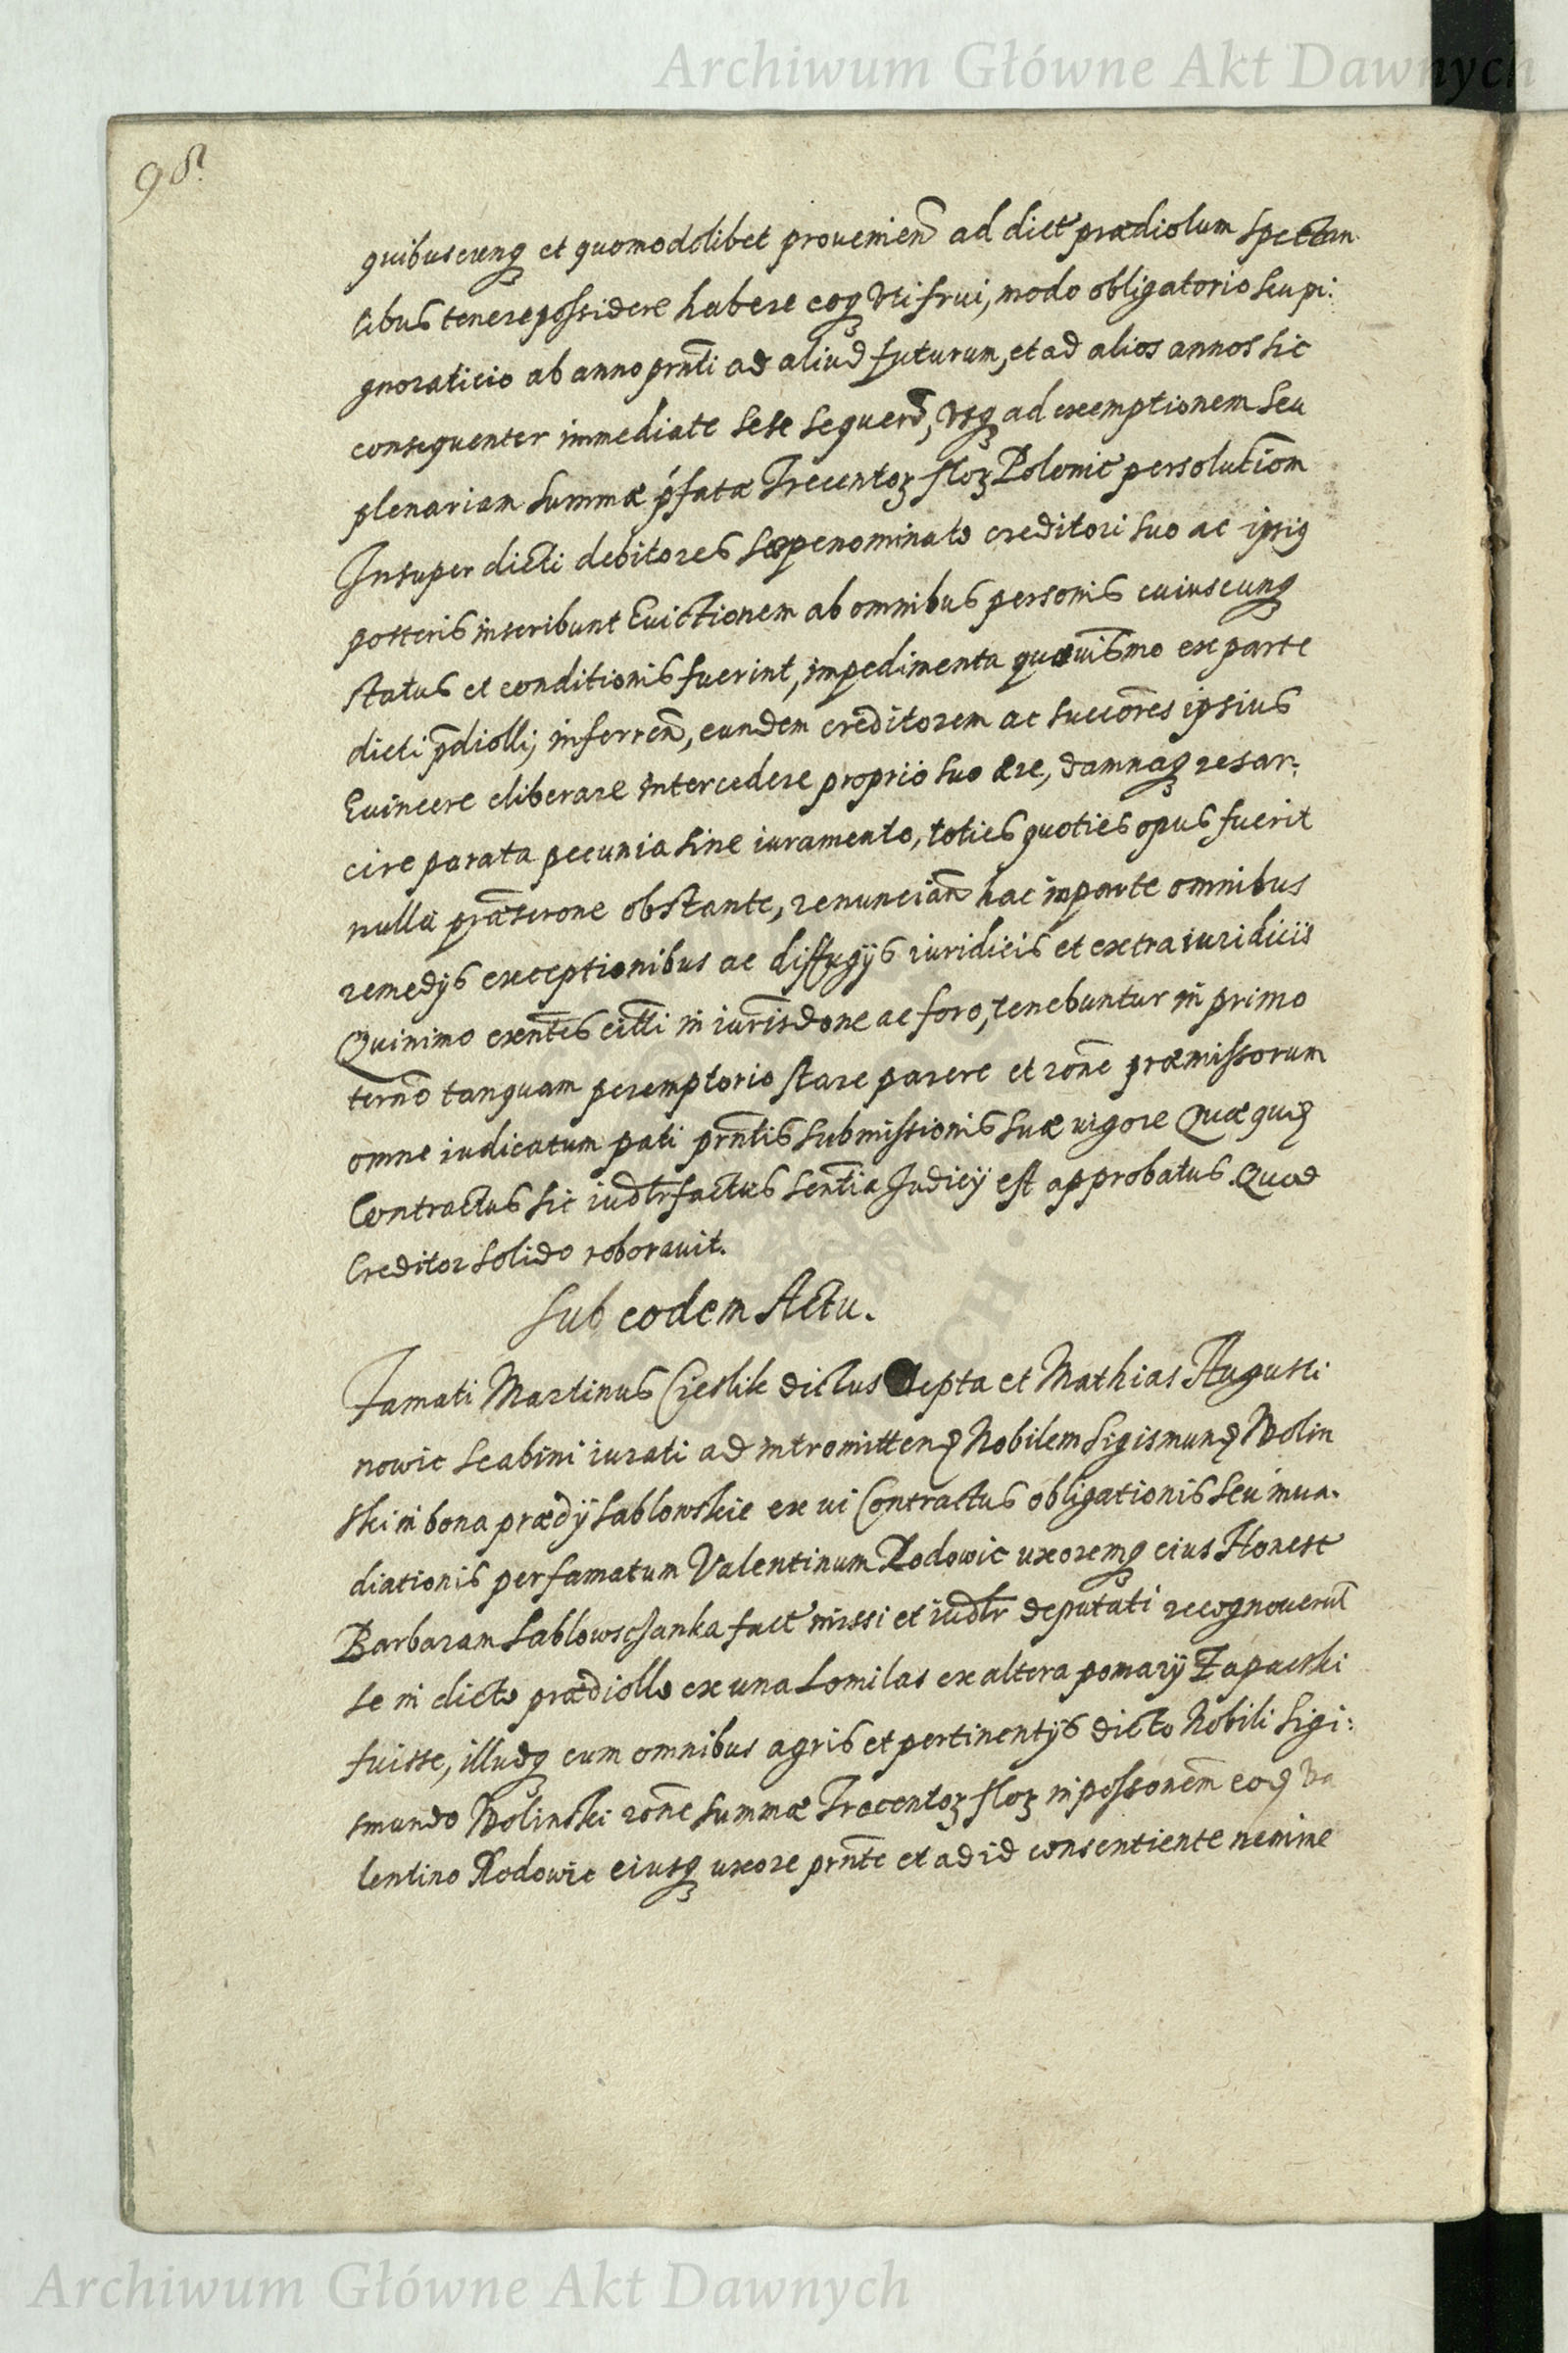 Archiwum Główne Akt Dawnych
98
quibuscunq et quomodolibet provenien ad dict prædiolum spectan
tibus tenere possidere habere eoq uti frui, modo obligatorio seu pi:
gnoraticio ab anno prnti ad aliud futurum, et ad alios annos sic
consequenter immediate sese sequen, usq ad exemptionem seu
plenariam summæ pfatæ Trecentoʒ floʒ Polonic persolutiom
Insuper dicti debitores sæpenominato creditori suo ac ipsiq
posteris inscribunt Evictionem ab omnibus personis cuiuscunq
status et conditionis fuerint, impedimenta quævismo ex parte
dicti pdiolli, inferren, eundem creditorem ac succores ipsius
Evincere eliberare intercedere proprio suo ære, damnaq resar:
cire parata pecunia sine iuramento, toties quoties opus fuerit
nulla præscrone obstante, renuncian hac in parte omnibus
remedijs exceptionibus ac diffugijs iuridicis et extraiuridiciis
Quinimo exntes citti in iurisdone ac foro, tenebuntur in primo
terno tanquam peremptorio stare parere et rone præmissorum
omne iudicatum pati prntis submissionis suæ vigore Quæ quid
Contractus sic iudtr factus sentia Judicij est approbatus. Quod
Creditor solido roboravit.
Sub eodem Actu.
Famati Martinus Cieslik dictus Depta et Mathias Augusti
nowic scabini iurati ad intromitten Nobilem Sigismund Wolin
ski in bona prædij Sablowskie ex vi Contractus obligationis seu inva.
diationis per famatum Valentinum Rodowic uxoremq eius Honest
Barbaram Sablowsczanka fact missi et iudtr deputati recognoverut
se in dicto prædiollo ex una Lomilas ex altera pomarij Zapacski
fuisse, illudq cum omnibus agris et pertinentijs dicto Nobili Sigi:
smundo Wolinski rone summæ Trecentoʒ floʒ in possonem eod Va
lentino Rodowic eiusq uxore prnte et ad id consentiente nemine
Archiwum Główne Akt Dawnych